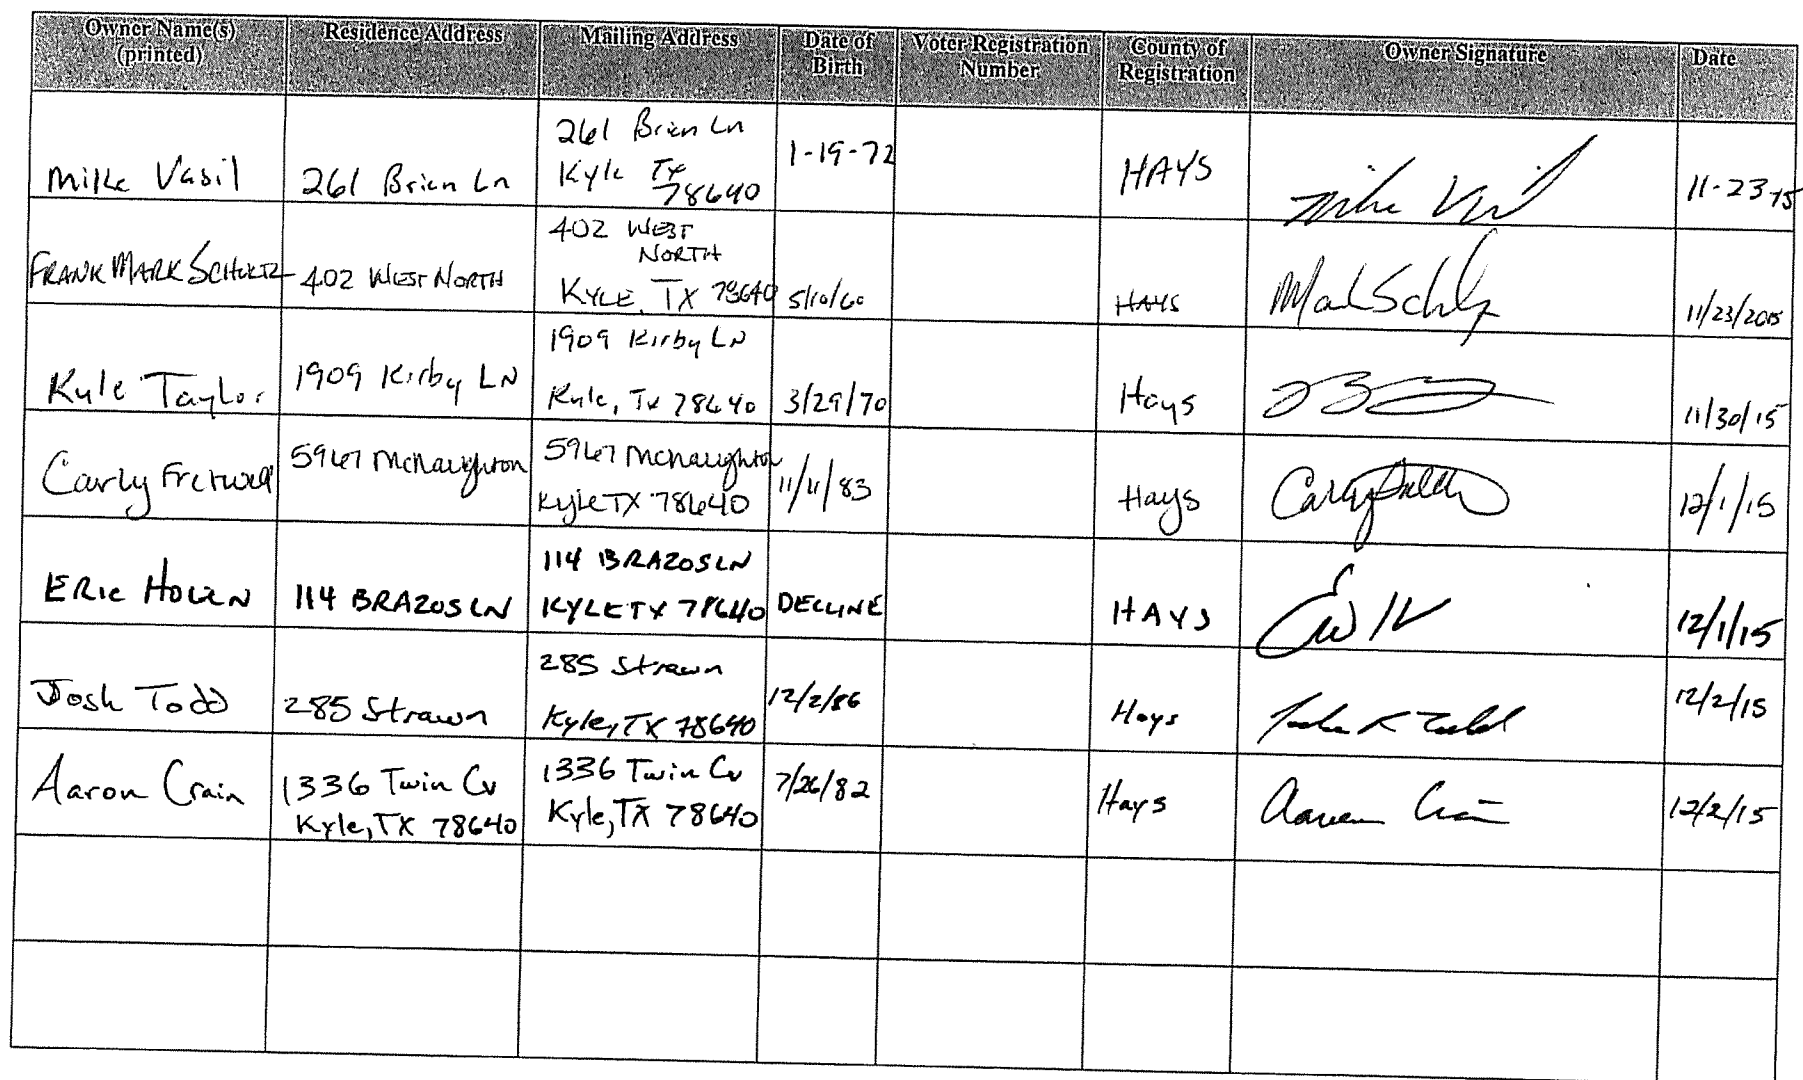 Owner Name(s) (printed) Residence Address Mailing Address Date of Birth Voter Registration Number County of Registration Owner Signature Date
Mike Vasil 261 Brian Ln 261 Brian Ln Kyle TX 78640 1-19-72 HAYS Mike Vasil 11-23-15
FRANK MARK SCHULTZ 402 WEST NORTH 402 WEST NORTH KYLE, TX 78640 5/10/60 HAYS Mark Schultz 11/23/2015
Kyle Taylor 1909 Kirby LN 1909 Kirby LN Kyle, Tx 78640 3/29/70 Hays 11/30/15
Carly Fretwell 5967 McNaughton 5967 McNaughton Kyle TX 78640 11/11/83 Hays Carly 12/1/15
ERIC HOLEN 114 BRAZOS LN 114 BRAZOS LN KYLE TX 78640 DECLINE HAYS 12/1/15
Josh Todd 285 Strawn 285 Strawn Kyle, TX 78640 12/2/86 Hays 12/2/15
Aaron Crain 1336 Twin Cv Kyle, TX 78640 1336 Twin Cv Kyle, TX 78640 7/26/82 Hays Aaron Crain 12/2/15